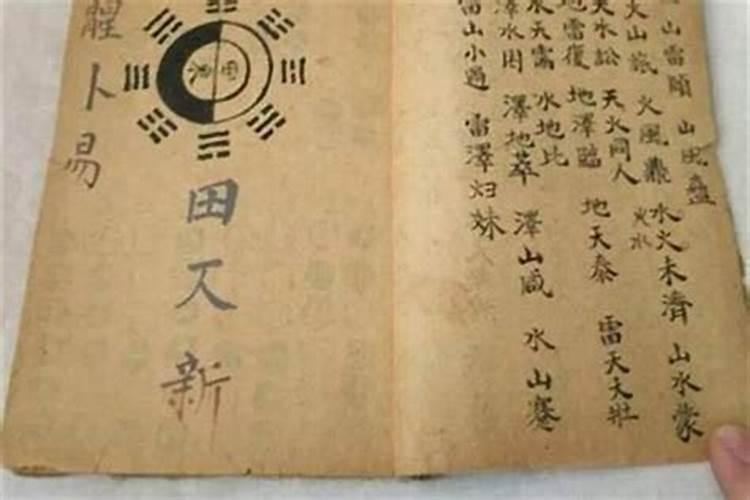 山雷頤 山風蠱
水火未濟 山水蒙
火水
火山旅 火風鼎
天水訟 天火同人
地雷復 地澤臨 地天泰 雷天大壯
水天需 水地比
澤水困 澤地萃 澤山咸 水山蹇
雷山小過 雷澤归妹
田 新
卜易